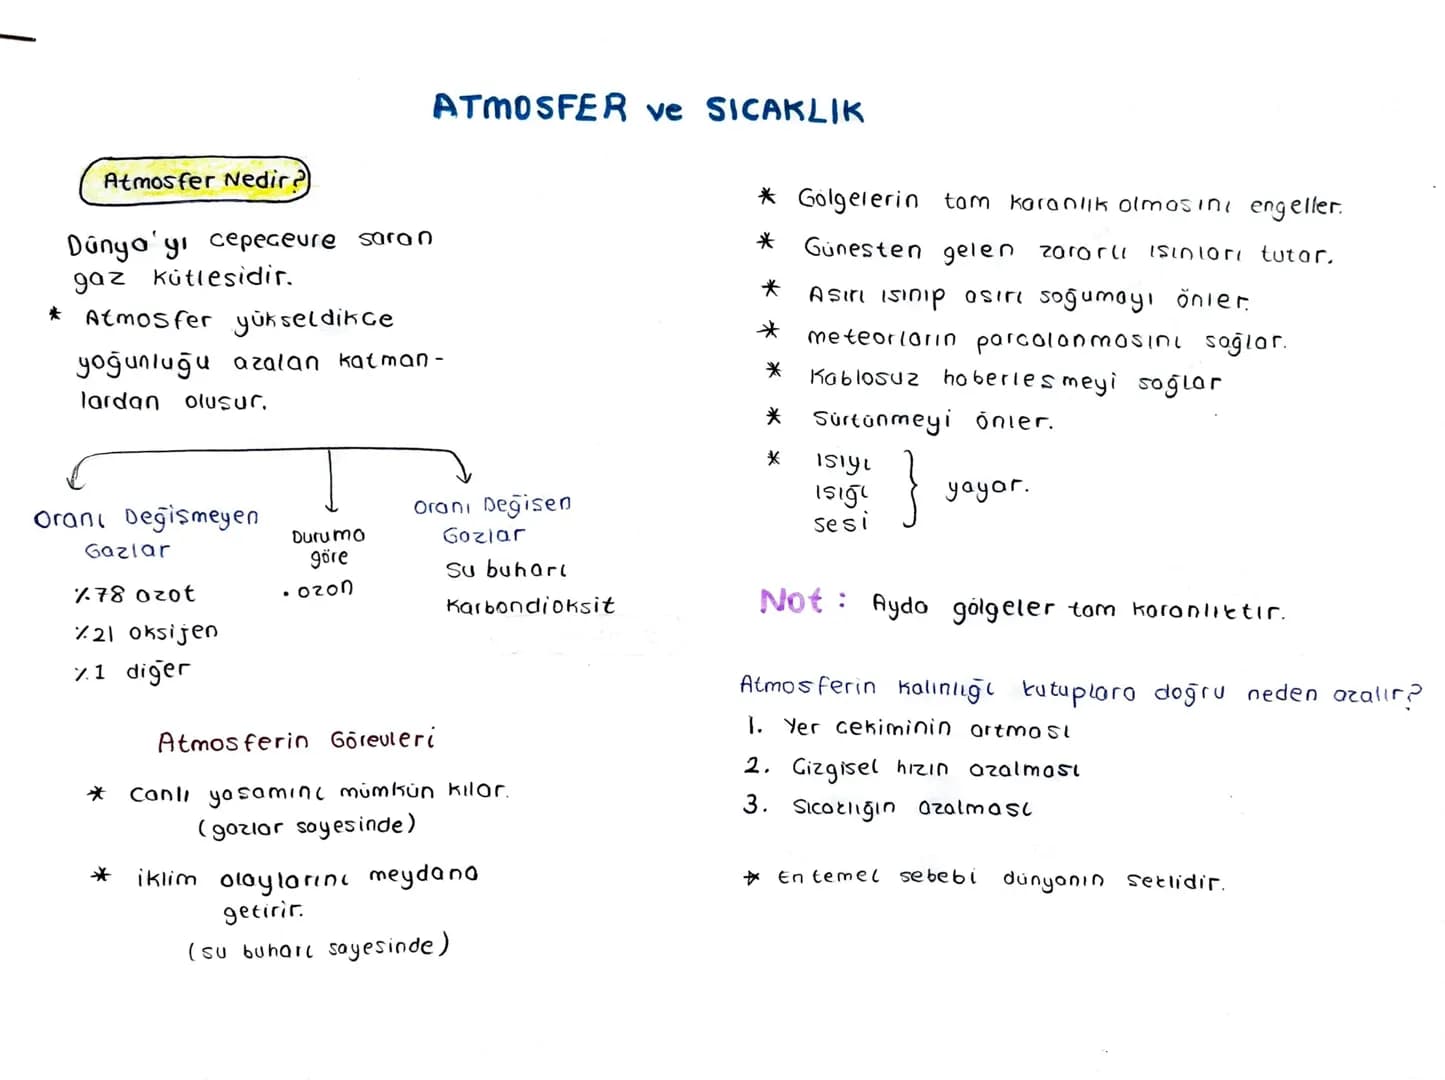 ATMOSFER ve SICAKLIK
Atmosfer Nedir?
Dünya'yı çepeçevre saran
gaz kütlesidir.
* Atmosfer yükseldikçe
yoğunluğu azalan katman-
lardan oluşur.
Oranı Değişmeyen
Gazlar
%78 azot
%21 oksijen
%1 diğer
Duruma
göre
• ozon
Oranı Değişen
Gazlar
Su buharı
Karbondioksit
Atmosferin Görevleri
* Canlı yaşamını mümkün kılar.
(gazlar sayesinde)
* iklim olaylarını meydana
getirir.
(su buharı sayesinde)
* Gölgelerin tam karanlık olmasını engeller.
* Güneşten gelen zararlı ışınları tutar.
* Aşırı ısınıp aşırı soğumayı önler.
* meteorların parçalanmasını sağlar.
* Kablosuz haberleşmeyi sağlar
* Sürtünmeyi önler.
* ısıyı
ışığı
sesi
yayar.
Not : Ayda gölgeler tam karanlıktır.
Atmosferin kalınlığı kutuplara doğru neden azalır?
1. Yer çekiminin artması
2. Çizgisel hızın azalması
3. Sıcaklığın azalması
* En temel sebebi dünyanın şeklidir.